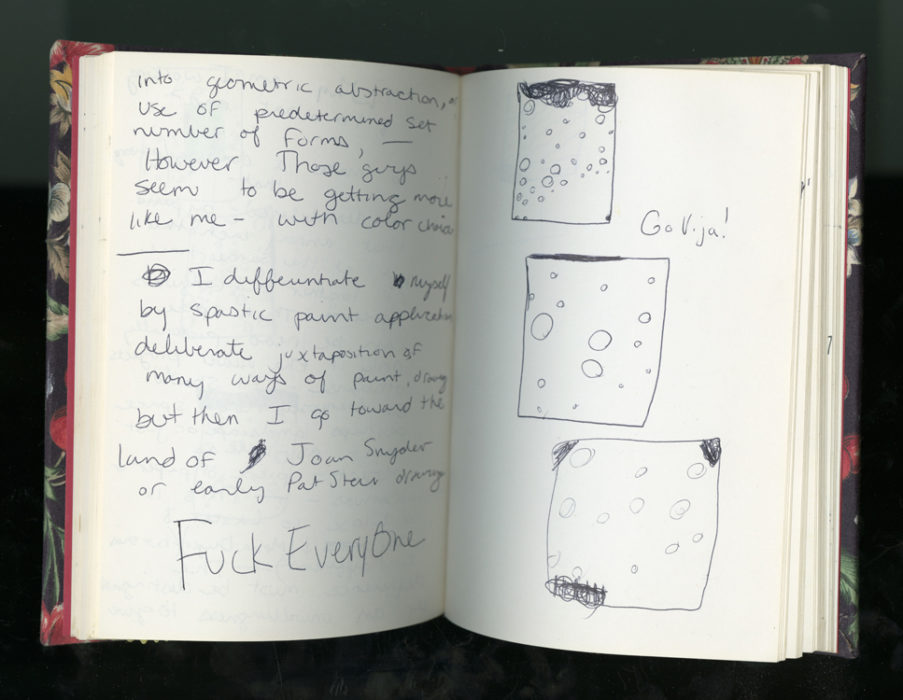 into geometric abstraction, or
use of predetermined set
number of forms, —
However Those guys
seem to be getting more
like me – with color choice
I differentiate myself
by spastic paint application
deliberate juxtaposition of
many ways of paint, drawing
but then I go toward the
land of Joan Snyder
or early Pat Steir drawing
Fuck EveryOne
Go Vija!